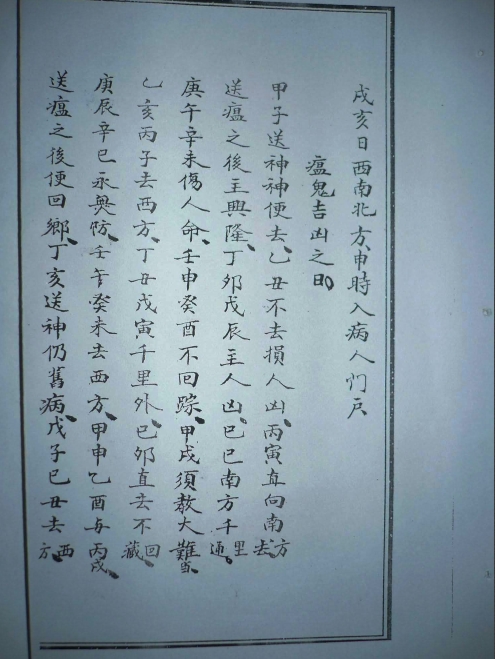 戌亥日西南北方、申時入病人门戶
瘟鬼吉凶之日
甲子送神神便去、乙丑不去損人凶、丙寅直向南方去、
送瘟之後主興隆、丁夘戊辰主人凶、己巳南方千里通、
庚午辛未傷人命、壬申癸酉不回踪、甲戌須教大難當、
乙亥丙子去西方、丁丑戊寅千里外、己夘直去不回藏、
庚辰辛巳永無防、壬午癸未去西方、甲申乙酉与丙戌、
送瘟之後便回鄉、丁亥送神仍舊病、戊子己丑去西方、